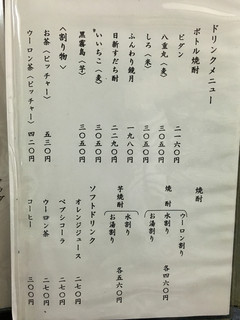 ドリンクメニュー
ボトル焼酎
ビダン 二一六〇円
八重丸（麦） 三〇五〇円
しろ（米） 三〇五〇円
ふんわり鏡月 一九八〇円
日新すだち酎 二二九〇円
いいちこ（麦） 三〇五〇円
黒霧島（芋） 三〇五〇円
〈割り物〉
お茶（ピッチャー） 五三〇円
ウーロン茶（ピッチャー） 四二〇円
焼酎
ウーロン割り
焼酎 水割り 各四六〇円
お湯割り
芋焼酎 水割り 各五六〇円
お湯割り
ソフトドリンク
オレンジジュース 二七〇円
ペプシコーラ 二七〇円
ウーロン茶 二七〇円
コーヒー 三〇〇円